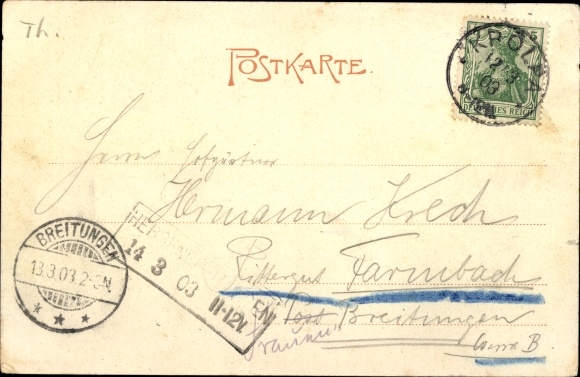 Th.
POSTKARTE.
12.3
03
REICH
Herrn Hofgärtner
Hermann Krech
BREITUNGEN
13.3.03.2-3N
14 3 03 11-12V
EN
Rittergut Farnbach
Post Breitungen
Werra B